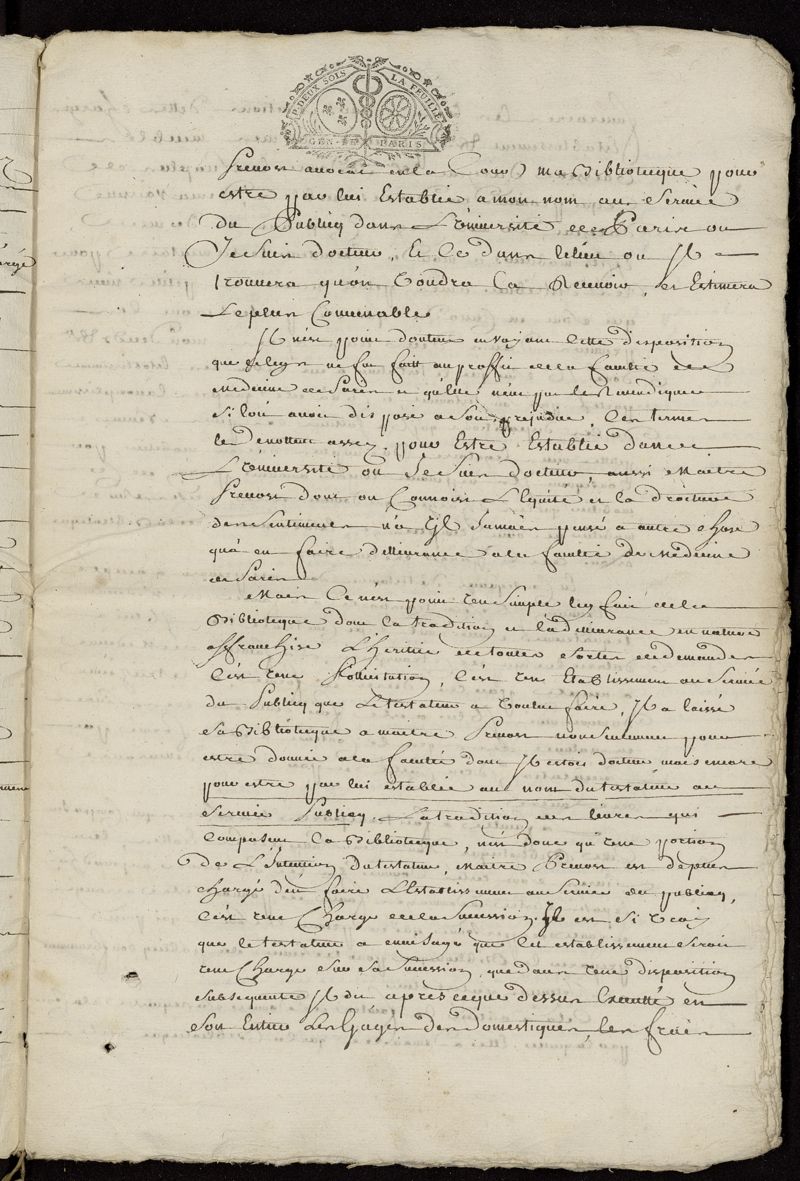 P. DEUX SOLS LA FEUILLE
GEN. DE PARIS
Prevost avocat en la Cour ma Bibliotheque pour
estre par lui Establie a mon nom au Service
du Publicq dans L'université de Paris ou
Je Suis docteur, Et Ce dans le lieu ou Jl
trouvera qu'on voudra la Recevoir, et Estimera
Le plus Convenable
Jl n'est point douteux en voyant cette disposition
que le legs ne fut fait au proffit de la faculté de
Medecine de Paris et qu'elle n'eut pu le Revendiquer
Si l'on avoit disposé a Son prejudice, Les termes
le denottent assez, pour Estre Establie dans
L'université ou Je Suis docteur, aussi Maitre
Prevost dont on Connoist L'Equité et la droiture
des Sentimens n'a Jl Jamais pensé a autre chose
qu'a en faire delivrance a la faculté de Medecine
de Paris
Mais Ce n'est point un Simple legs fait de la
Bibliotheque dont la tradition et la delivrance en nature
affranchisse L'heritier de toutes Sortes de demandes
C'est une fondation, C'est un Etablissement au Service
du Publicq que Le testateur a voulu faire, Jl a laissé
Sa Bibliotheque a maitre Prevost non Seulement pour
estre donnée a la faculté dont Jl estoit docteur mais encore
pour estre par lui establie au nom du testateur au
Service Publicq, La tradition des livres qui
Composent la Bibliotheque, n'est donc qu'une portion
de L'intention du testateur, Maitre Prevost est de plus
Chargé d'en faire L'Etablissement au Service du publicq,
C'est une Charge de la Succession, Jl est Si vray
que le testateur a envisagé que cet establissement Seroit
une Charge Sur Sa Succession, que dans une disposition
Subsequente Jl dit apres ce que dessus Executté en
Son Entier Les Gages des domestiques, les frais